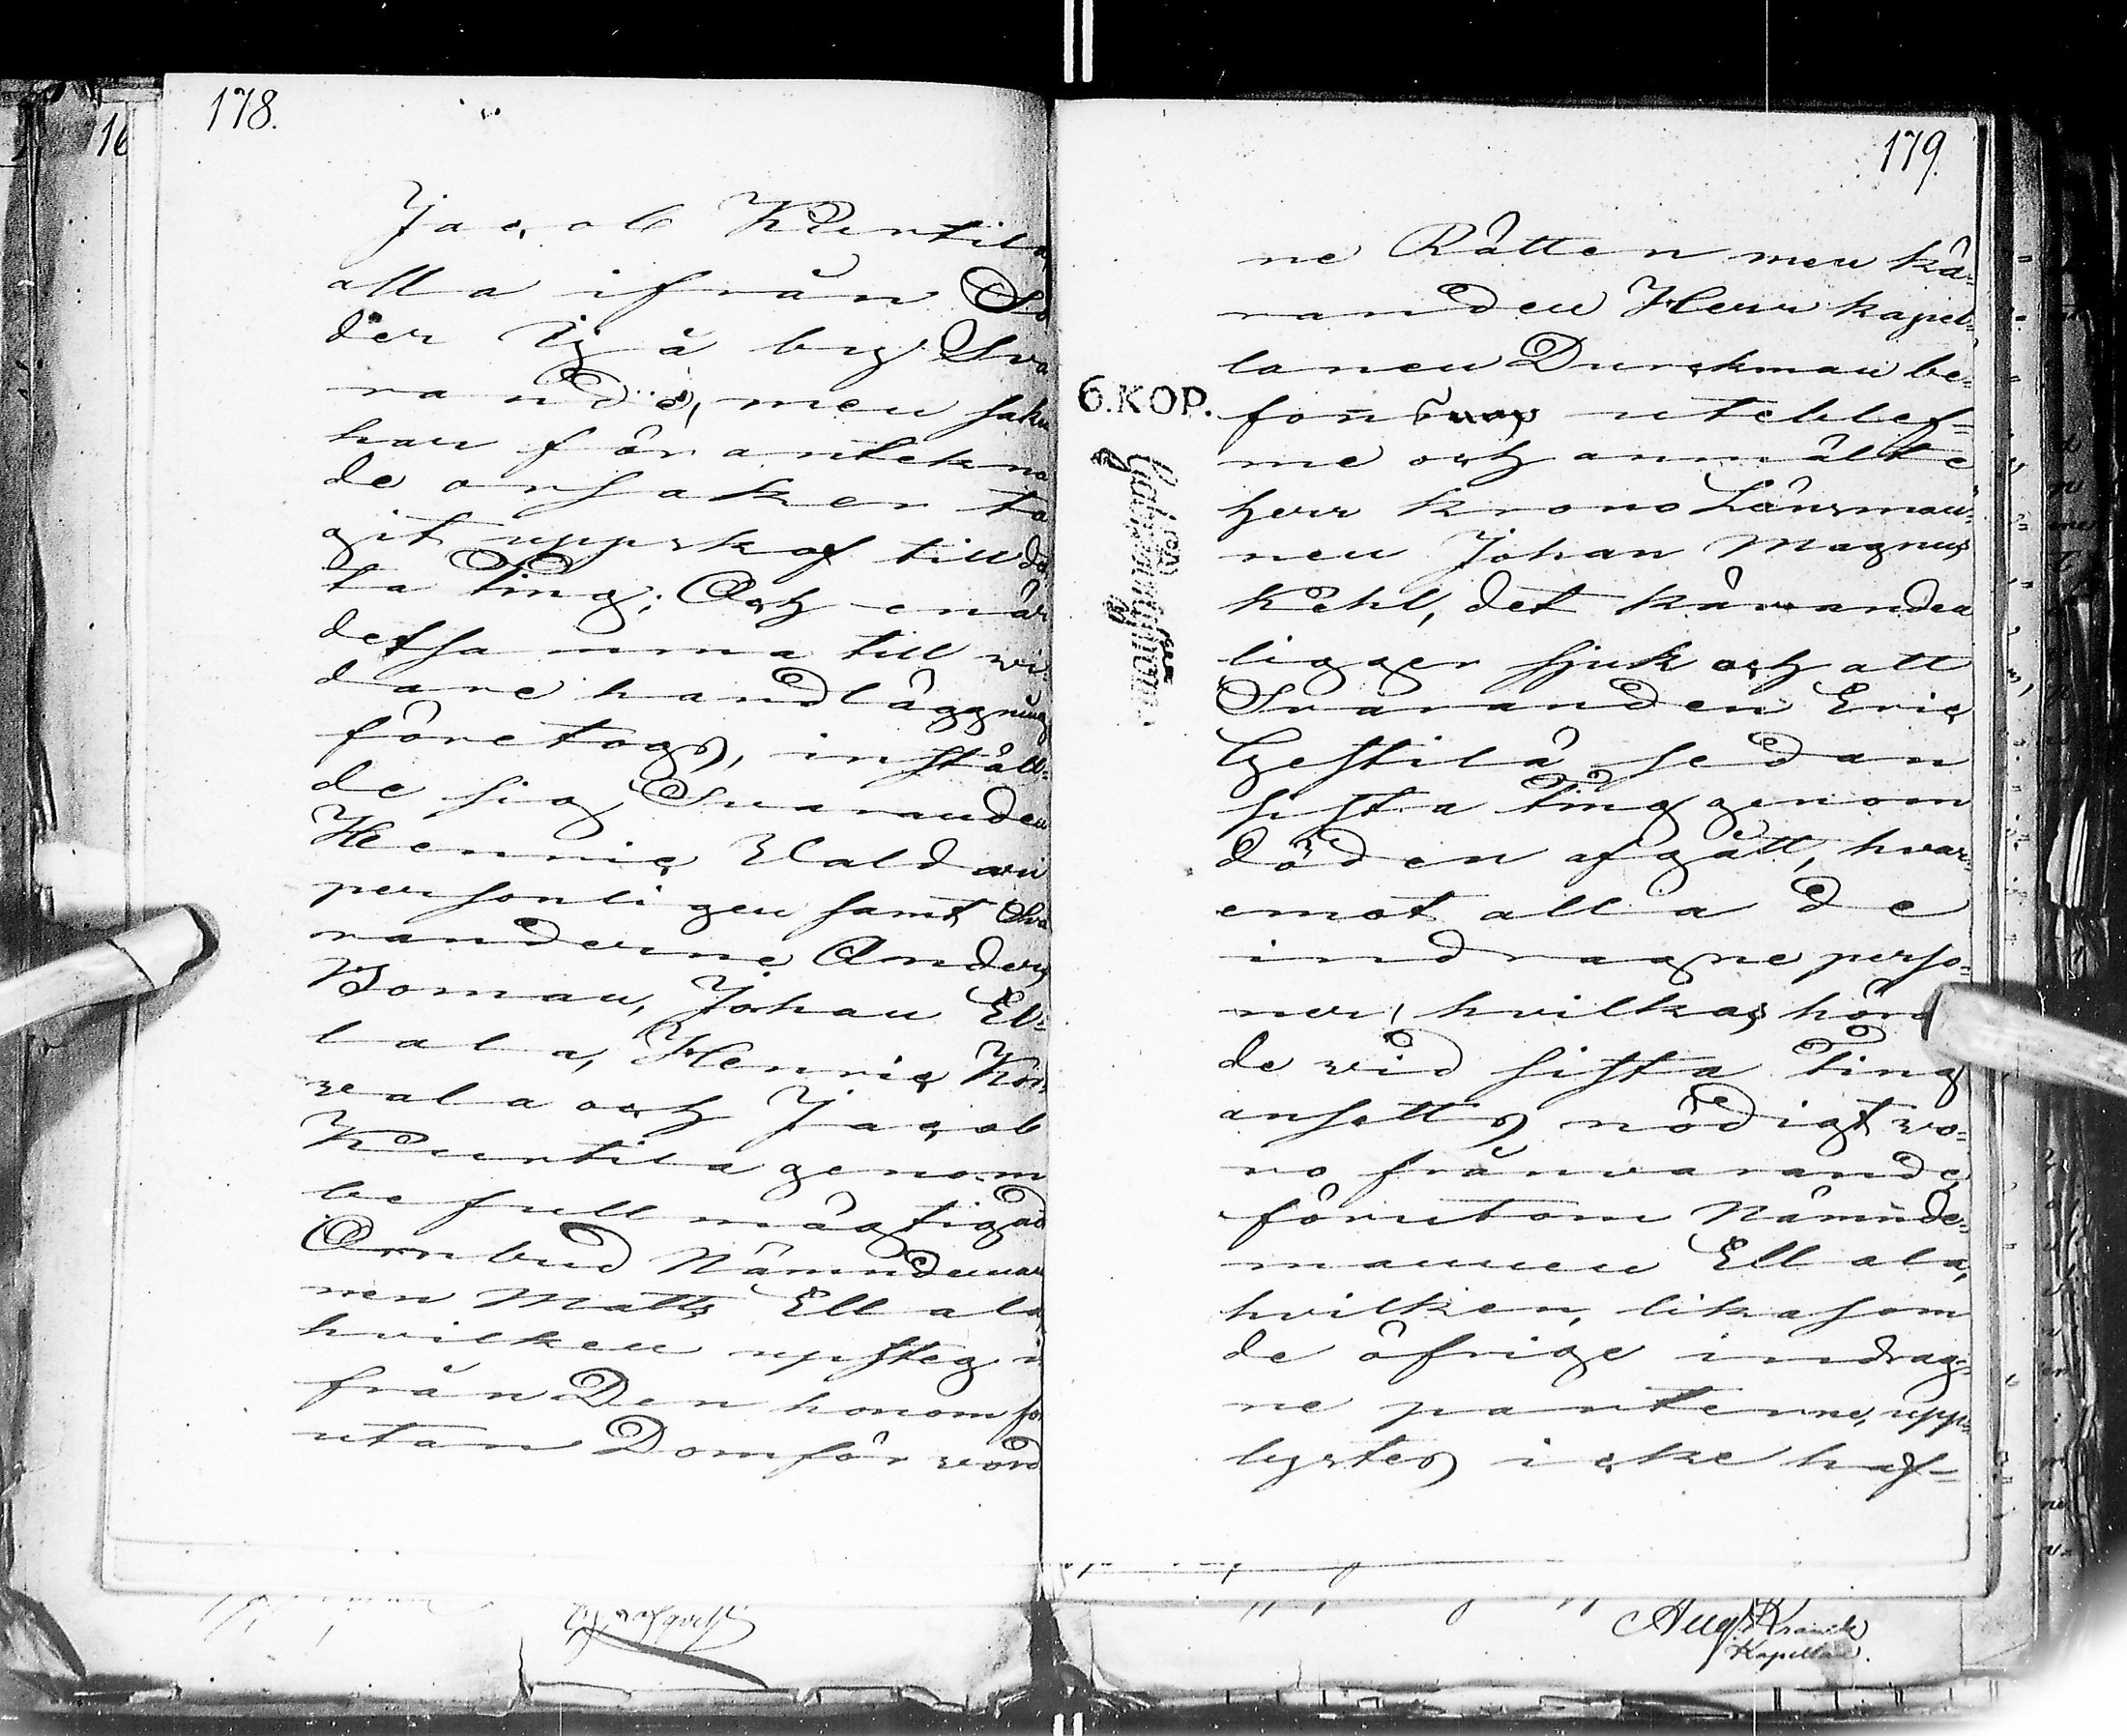 178.
Jacob Kurtila,
alla ifrån Sö
der Ÿijå by Sva
rande, men sake
har för anteckna
de orsaker ta
git uppskof till de
ta Ting; Och enär
detsamma till vi-
dare handläggning
företogs, inställ-
de sig Svaranden
Henric Waldari
personligen samt Sva
randerne Anders
Boman, Johan El-
lala, Henric Kor-
vala och Jacob
Kurtila genom
befullmägtigad
Ombud Nämndeman
nen Matts Ellala,
hvilken upsteg i
från Den honom för
utan Domför vord
179.
ne Rätten men kä-
randen Herr kapel-
lanen Durchman be-
fanns uteblef-
ne och anmälte
herr krono Länsman-
nen Johan Magnus
Kehl, det käranden
ligger sjuk och att
Svaranden Eric
Gestilä sedan
sista Ting genom
döden afgått, hvar-
emot alla de
indragne perso-
ner, hvilkas höran
de vid sista Ting
ansetts nödigt vo-
ro frånvarande
förutom Nämnde-
mannen Ellala,
hvilken, likasom
de öfrige indrag-
ne parterne, upp-
lystes icke haf-
6.KOP.
Aug Kranck
Kapellan.